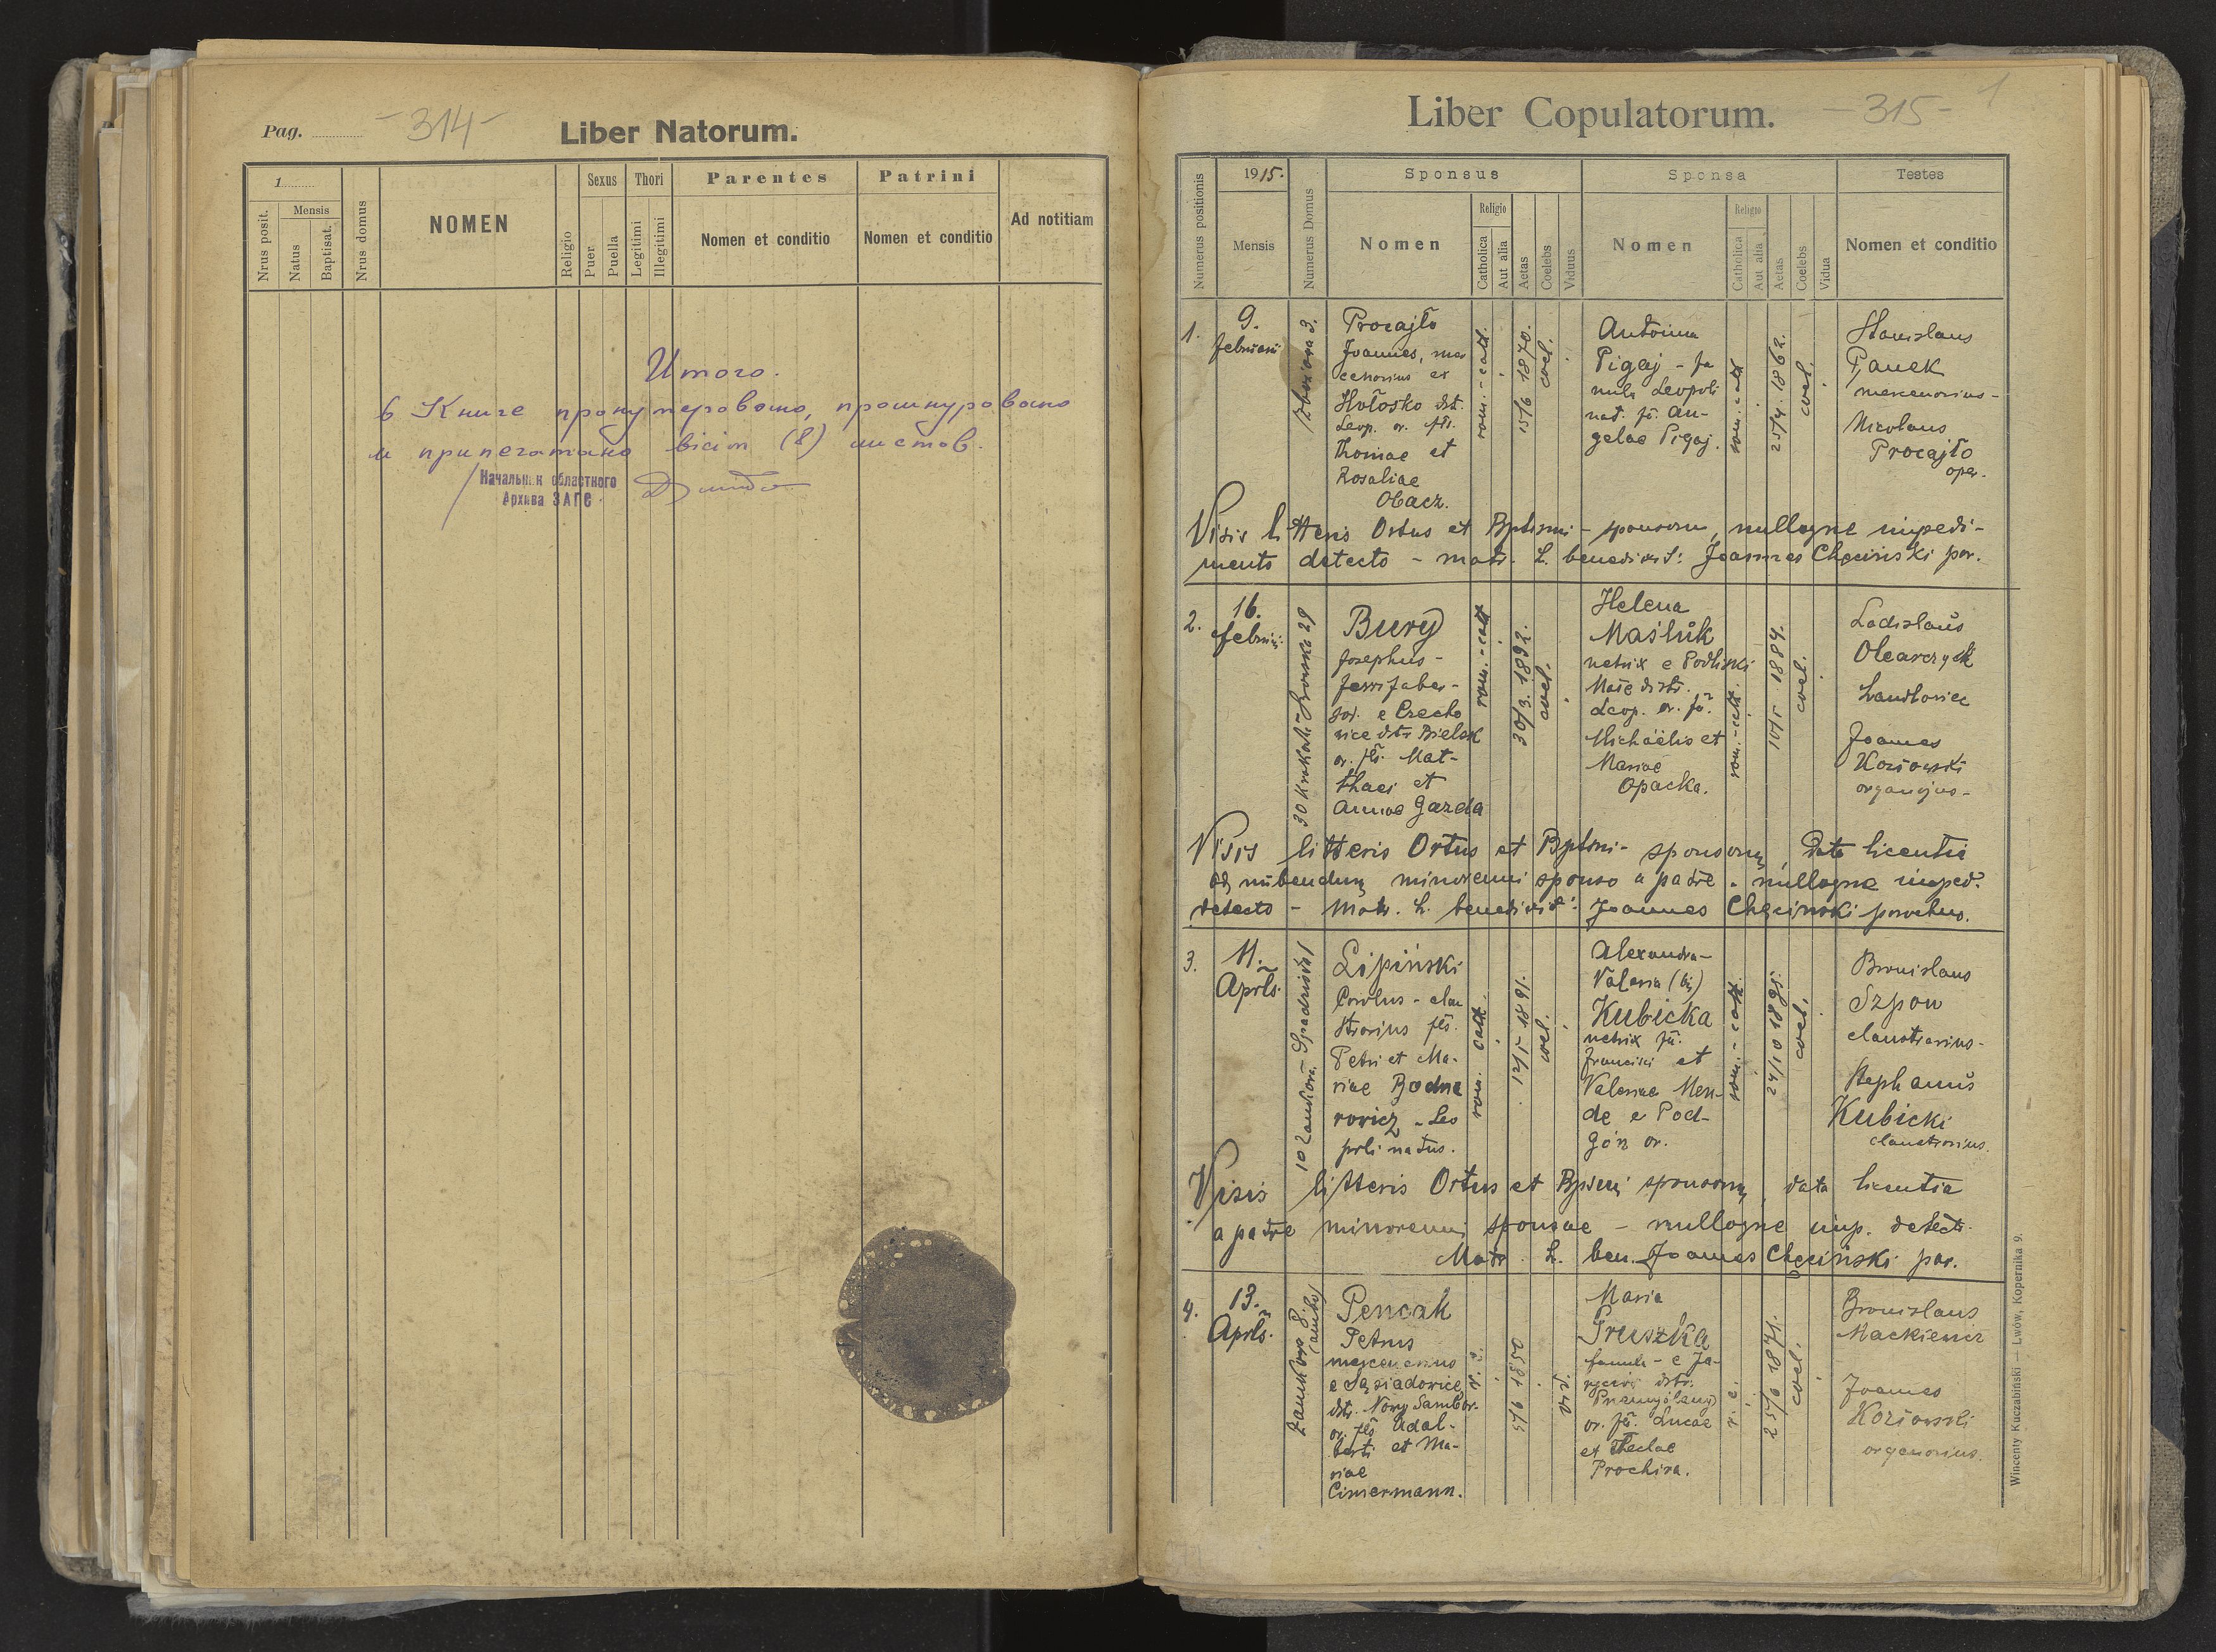 Pag. -314- Liber Natorum.
1
Nrus posit.
Mensis
Natus
Baptisat.
Nrus domus
NOMEN
Religio
Sexus
Puer
Puella
Thori
Legitimi
Illegitimi
Parentes
Nomen et conditio
Patrini
Nomen et conditio
Ad notitiam
Итого.
В Книге пронумеровано, прошнуровано
и припечатано вісім (8) листов.
Начальник областного
Архива ЗАГС
Liber Copulatorum. -315- 1
Numerus positionis
1915.
Mensis
Numerus Domus
Sponsus
Nomen
Religio
Catholica
Aut alia
Aetas
Coelebs
Viduus
Sponsa
Nomen
Religio
Catholica
Aut alia
Aetas
Coelebs
Vidua
Testes
Nomen et conditio
1.
9.
februarii
Procajło
Joannes, mer
cenarius ex
Hołosko dst.
Leop. or. fls.
Thomae et
Rosaliae
Obacz.
rom.-cath.
15/6 1870.
coel.
Antonina
Pigaj - fa
mula Leopoli
nat. fa. An-
gelae Pigaj.
rom.-cath
25/4. 1862.
coel.
Stanislaus
Panek
mercenarius-
Nicolaus
Procajło
oper.
Visis litteris Ortus et Bptismi - sponsorum, nulloque impedi-
mento detecto - matr. h. benedixit: Joannes Chęciński par.
2.
16.
februarii
Bury
Josephus -
ferrifaber-
or. e Czecho
wice dstr Bielsk
or. fls. Mat-
thaei et
Annae Gazda
rom.-cath
30/3. 1892.
coel.
Helena
Maśluk
netrix e Podliski
Małe distr.
Leop. or. fa.
Michaëlis et
Mariae
Opacka.
rom.-cath.
10/5 1884.
coel.
Ladislaus
Olearczyk
handlowiec
Joannes
Kozłowski
organarius-
Visis litteris Ortus et Bptismi - sponsorum, data licentia
ad nubendum minorenni sponso a patre - nulloque imped.
detecto - Matr. h. benedixit: Joannes Chęciński parochus.
3.
11.
Aprilis.
Lipiński
Carolus - clau
strarius fls.
Petri et Ma-
riae Bodna
rowicz - Leo
poli natus.
rom. cath.
12/5 1891.
coel.
Alexandra-
Valeria (bis)
Kubicka
netrix fa.
Francisci et
Valeriae Men-
de e Pod-
górz or.
rom.-cath.
24/10 1895.
coel.
Bronislaus
Szpon
claustrarius-
Stephanus
Kubicki
claustrarius.
Visis litteris Ortus et Bptismi sponsorum, data licentia
a patre minorenni sponsae - nulloque imp. detecto.
Matr. h. ben. Joannes Chęciński par.
4.
13.
Aprilis.
Pencak
Petrus
mercenarius
e Sąsiadowice
dstr. Nowy Sambor.
or. fls Adal-
berti et Ma-
riae
Cimermann.
r. c.
5/10 1850
vid.
Maria
Pruszka
famula - e Ja-
dstr.
Przemyślany
or. fa. Lucae
et Theclae
Prochira.
r. c.
25/0 1871.
coel.
Bronislaus
Mackiewicz
Joannes
Kozłowski
organarius.
Wincenty Kuczabiński — Lwów, Kopernika 9.